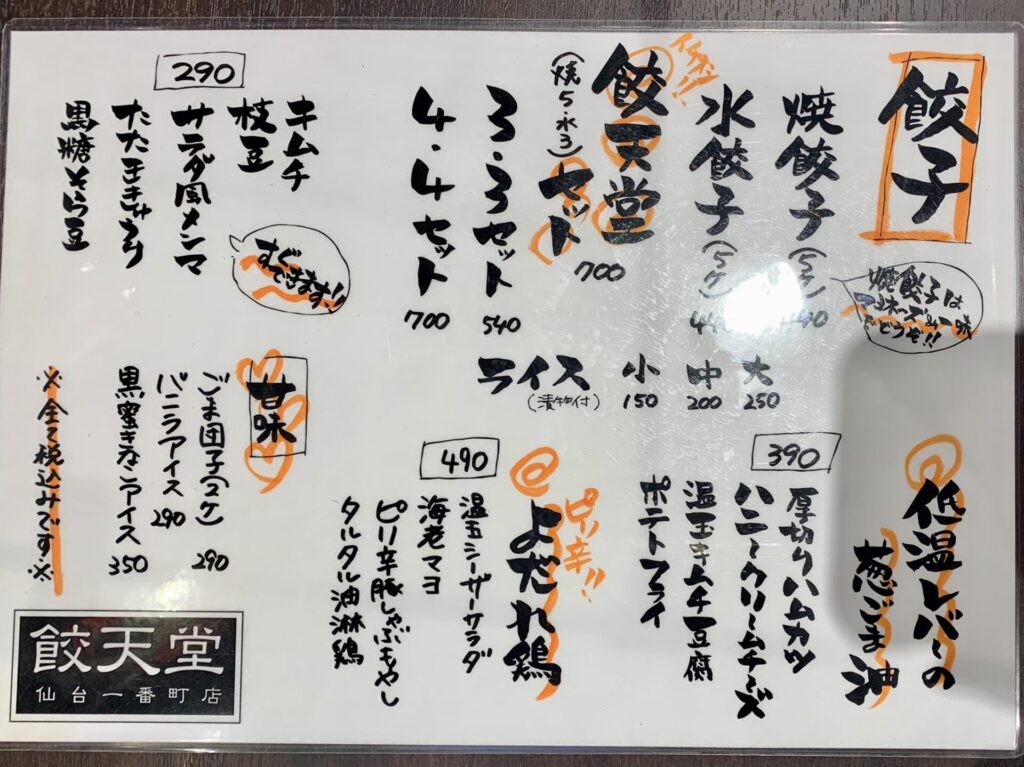 餃子
焼餃子(5ケ)
440
焼餃子は
マヨネーズ&一味
でどうぞ!!
水餃子(5ケ)
440
イチオシ!!
餃天堂
セット
(焼5・水3)
700
3・3セット
540
4・4セット
700
ライス
(漬物付)
小
150
中
200
大
250
290
キムチ
枝豆
サラダ風メンマ
たたききゅうり
黒糖そら豆
すぐ
できます!!
低温レバーの
葱ごま油
390
厚切りハムカツ
ハニークリームチーズ
温玉キムチ豆腐
ポテトフライ
490
ピリ辛!!
よだれ鶏
温玉シーザーサラダ
海老マヨ
ピリ辛豚しゃぶもやし
タルタル油淋鶏
甘味
ごま団子(2ケ)
290
バニラアイス
290
黒蜜きなこアイス
350
※全て税込みです※
餃天堂
仙台一番町店